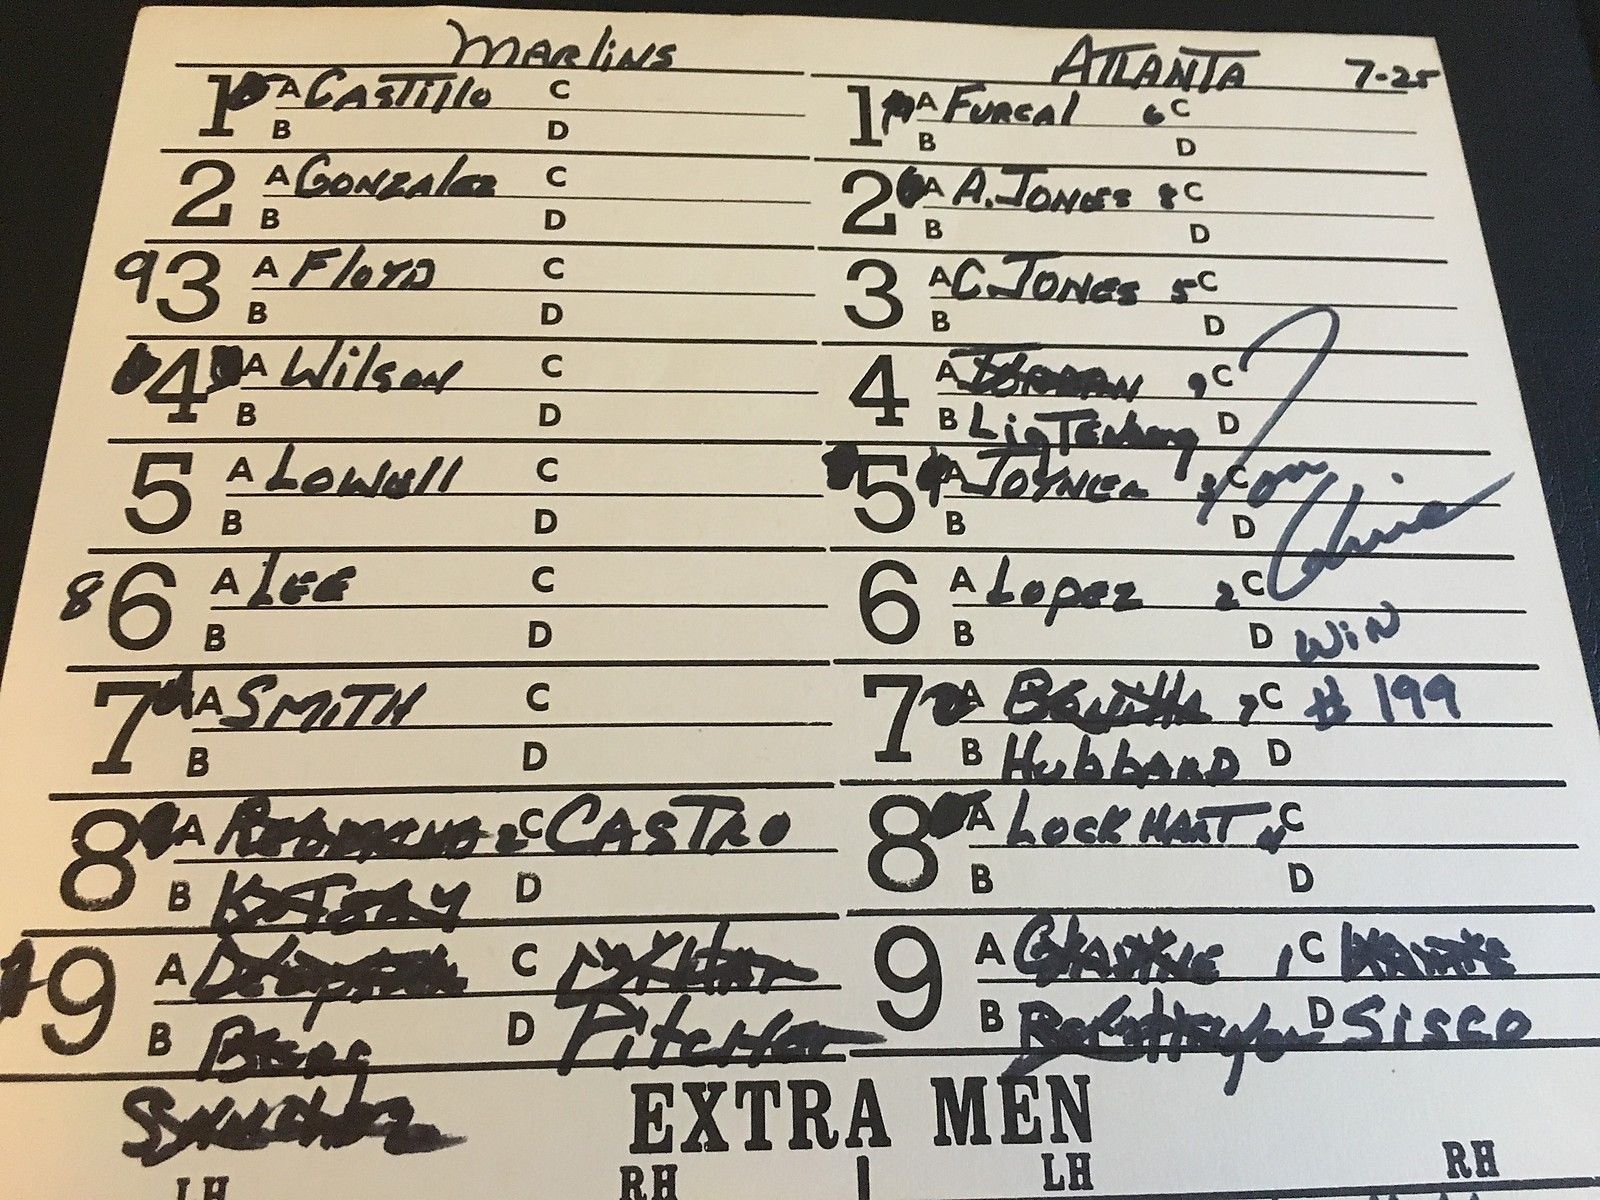 Marlins
1 A Castillo C
B D
2 A Gonzalez C
B D
93 A Floyd C
B D
4 A Wilson C
B D
5 A Lowell C
B D
86 A Lee C
B D
7 A Smith C
B D
8 A 2 C Castro
B D
9 A C
B Berg D Pitcher
Sanchez
Atlanta 7-25
1 A Furcal 6 C
B D
2 A A. Jones 8 C
B D
3 A C. Jones 5 C
B D
4 A Jordan 9 C
B Ligtenberg D
5 A Joyner 3 C
B D
6 A Lopez 2 C
B D
7 A 7 C
B Hubbard D
8 A Lockhart 4 C
B D
9 A Glavine 1 C
B D Sisco
Tom Glavine
Win
# 199
EXTRA MEN
LH RH LH RH